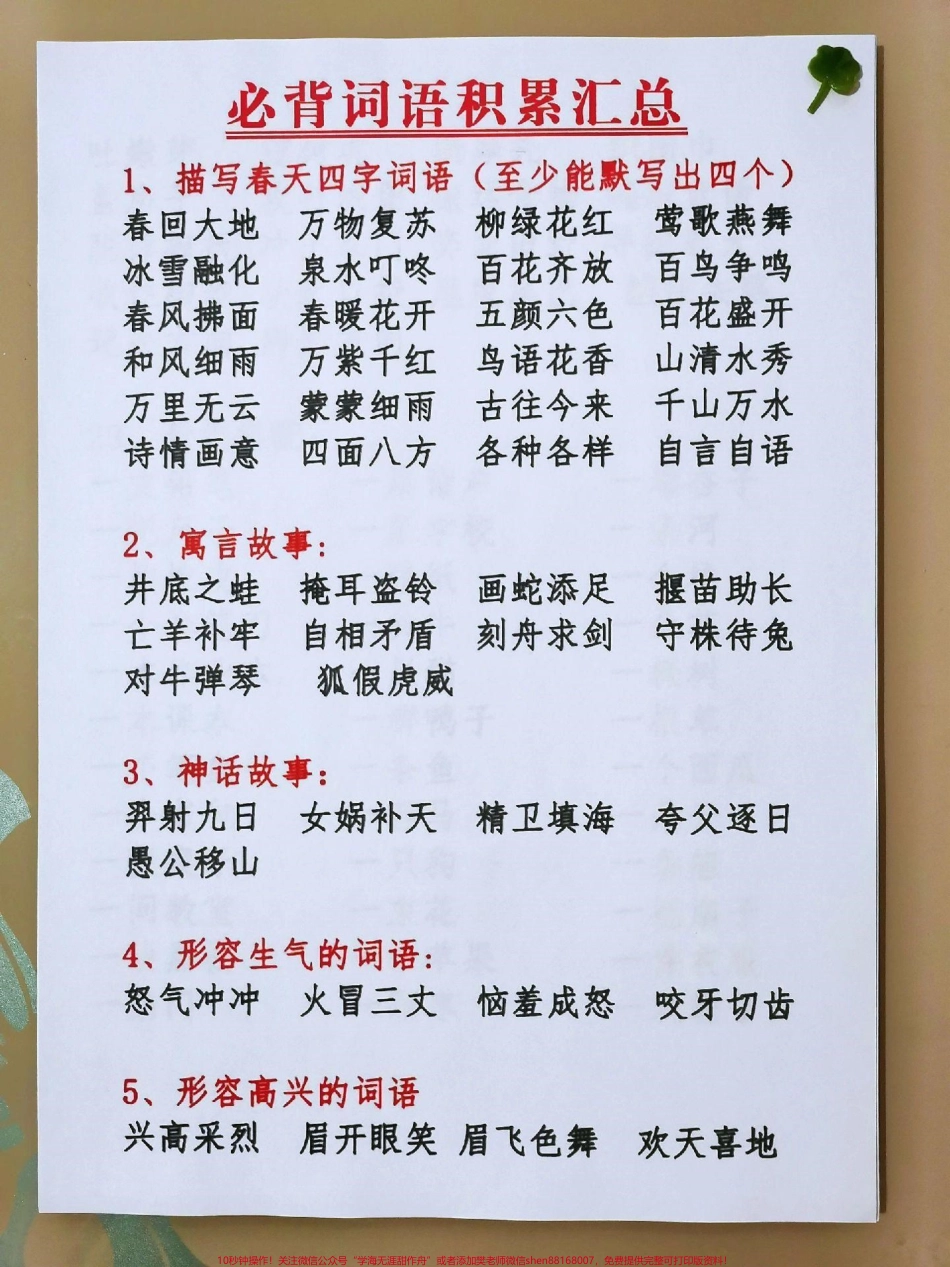 必背词语积累汇总
1、描写春天四字词语（至少能默写出四个）
春回大地 万物复苏 柳绿花红 莺歌燕舞
冰雪融化 泉水叮咚 百花齐放 百鸟争鸣
春风拂面 春暖花开 五颜六色 百花盛开
和风细雨 万紫千红 鸟语花香 山清水秀
万里无云 蒙蒙细雨 古往今来 千山万水
诗情画意 四面八方 各种各样 自言自语
2、寓言故事:
井底之蛙 掩耳盗铃 画蛇添足 揠苗助长
亡羊补牢 自相矛盾 刻舟求剑 守株待兔
对牛弹琴 狐假虎威
3、神话故事：
羿射九日 女娲补天 精卫填海 夸父逐日
愚公移山
4、形容生气的词语:
怒气冲冲 火冒三丈 恼羞成怒 咬牙切齿
5、形容高兴的词语
兴高采烈 眉开眼笑 眉飞色舞 欢天喜地
10秒钟操作！关注微信公众号“学海无涯甜作舟”或者添加樊老师微信shen88168007，免费提供完整可打印版资料！